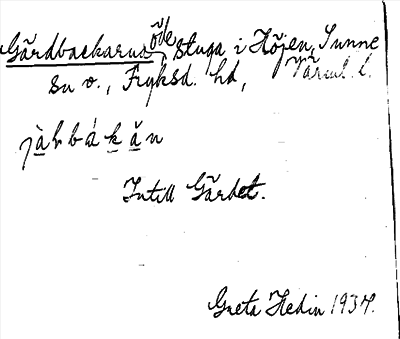 Gårdbackarna öde stuga i Höjen, Sunne
sn o., Fryksd. hd, Värml. l.
jàḷbákän
Intill Gärdet.
Greta Hedin 1934.